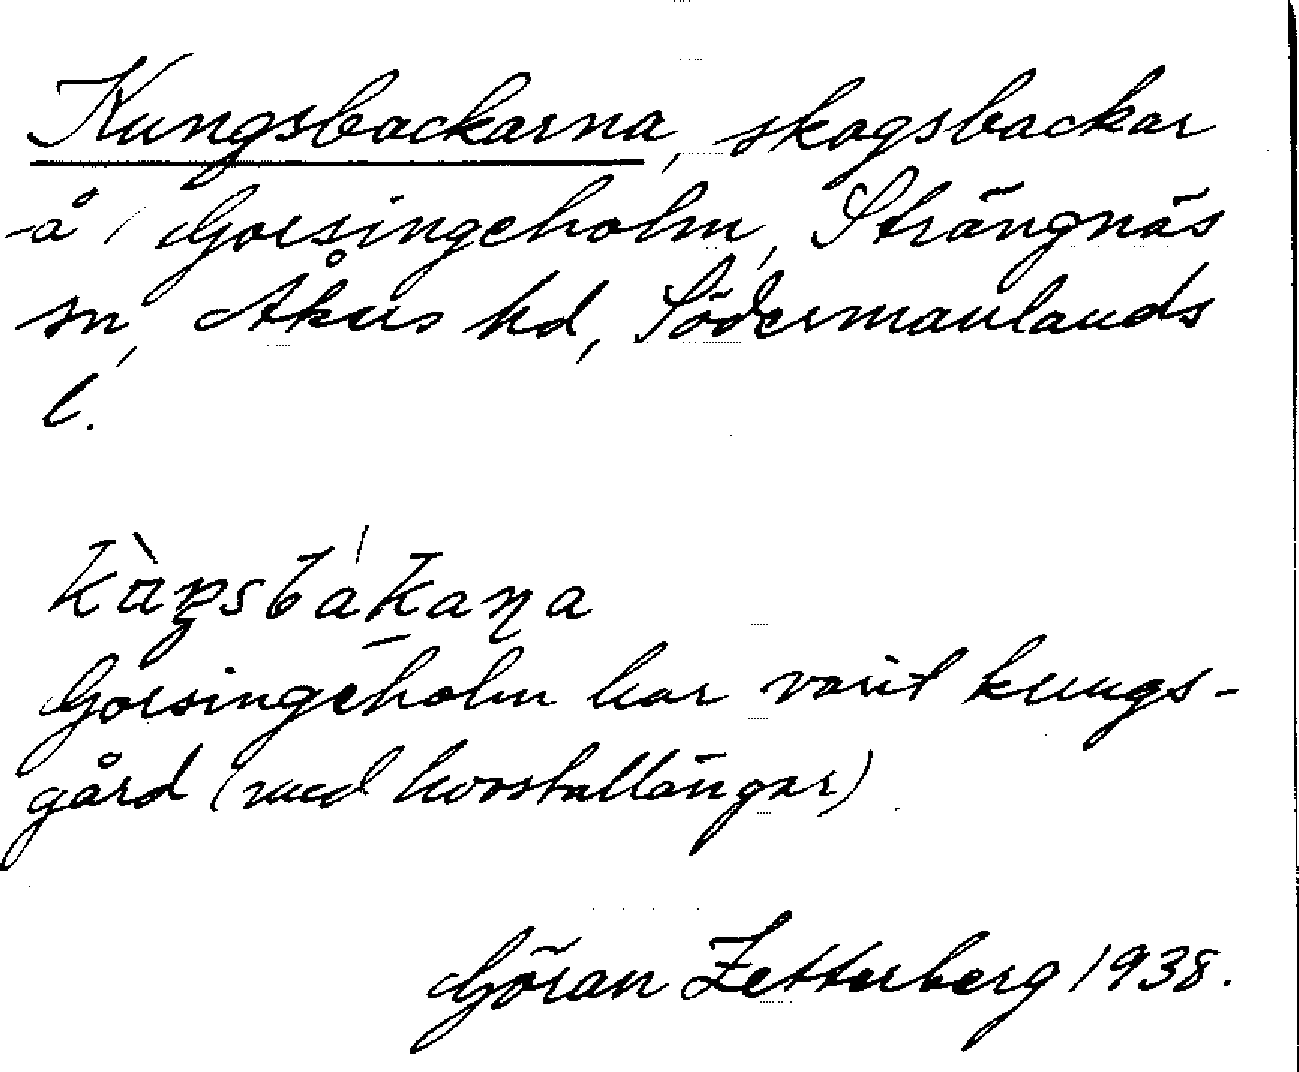 Kungsbackarna, skogsbackar
å Gorsingeholm, Strängnäs
sn, Åkers hd, Södermanlands
l.
Gorsingeholm har varit kungs-
gård (med hovstallängar)
Göran Zetterberg 1938.